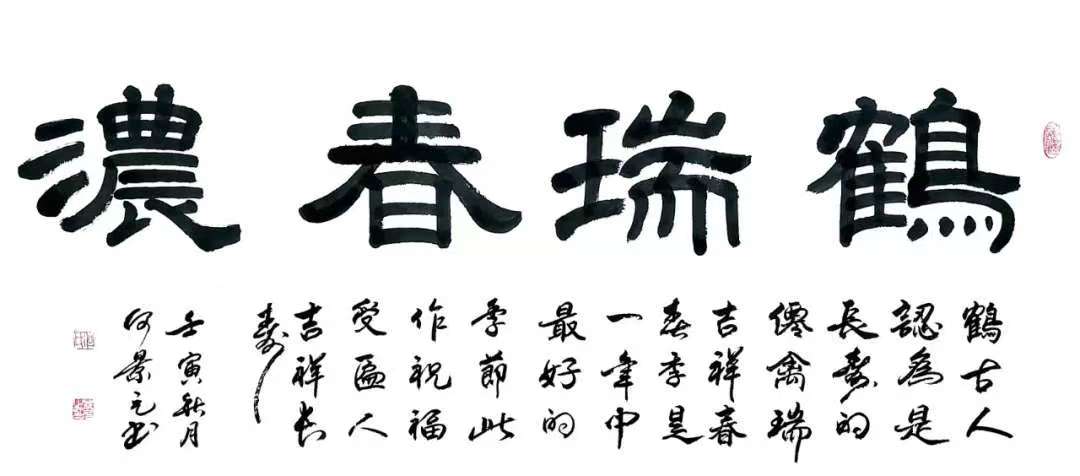 鶴瑞春濃
鶴古人
認為是
長壽的
僊禽瑞
吉祥春
春季是
一年中
最好的
季節此
作祝福
受匾人
吉祥長
壽
壬寅秋月
何景元书